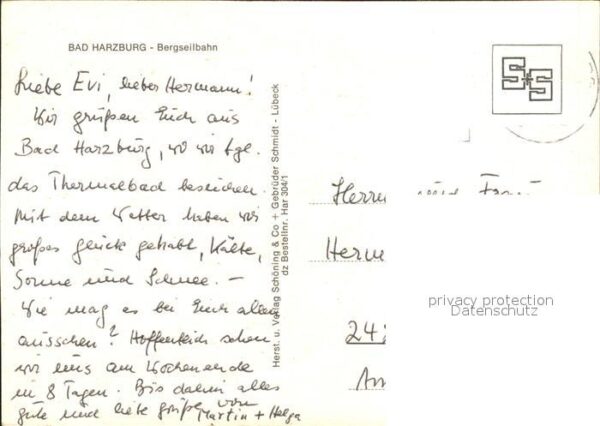 BAD HARZBURG - Bergseilbahn
Liebe Evi, lieber Hermann!
Wir grüßen Euch aus
Bad Harzburg, wo wir tgl.
das Thermalbad besuchen.
Mit dem Wetter haben wir
großes Glück gehabt, Kälte,
Sonne und Schnee. –
Wie mag es bei Euch allen
ausschen? Hoffentlich sehen
wir uns am Wochenende
in 8 Tagen. Bis dahin alles
gute und liebe Grüße von
Martin + Helga
Herst. u. Verlag Schöning & Co + Gebrüder Schmidt - Lübeck
dz Bestellnr. Har 304/1
S+S
Herrn und Frau
Herm
24
privacy protection
Datenschutz